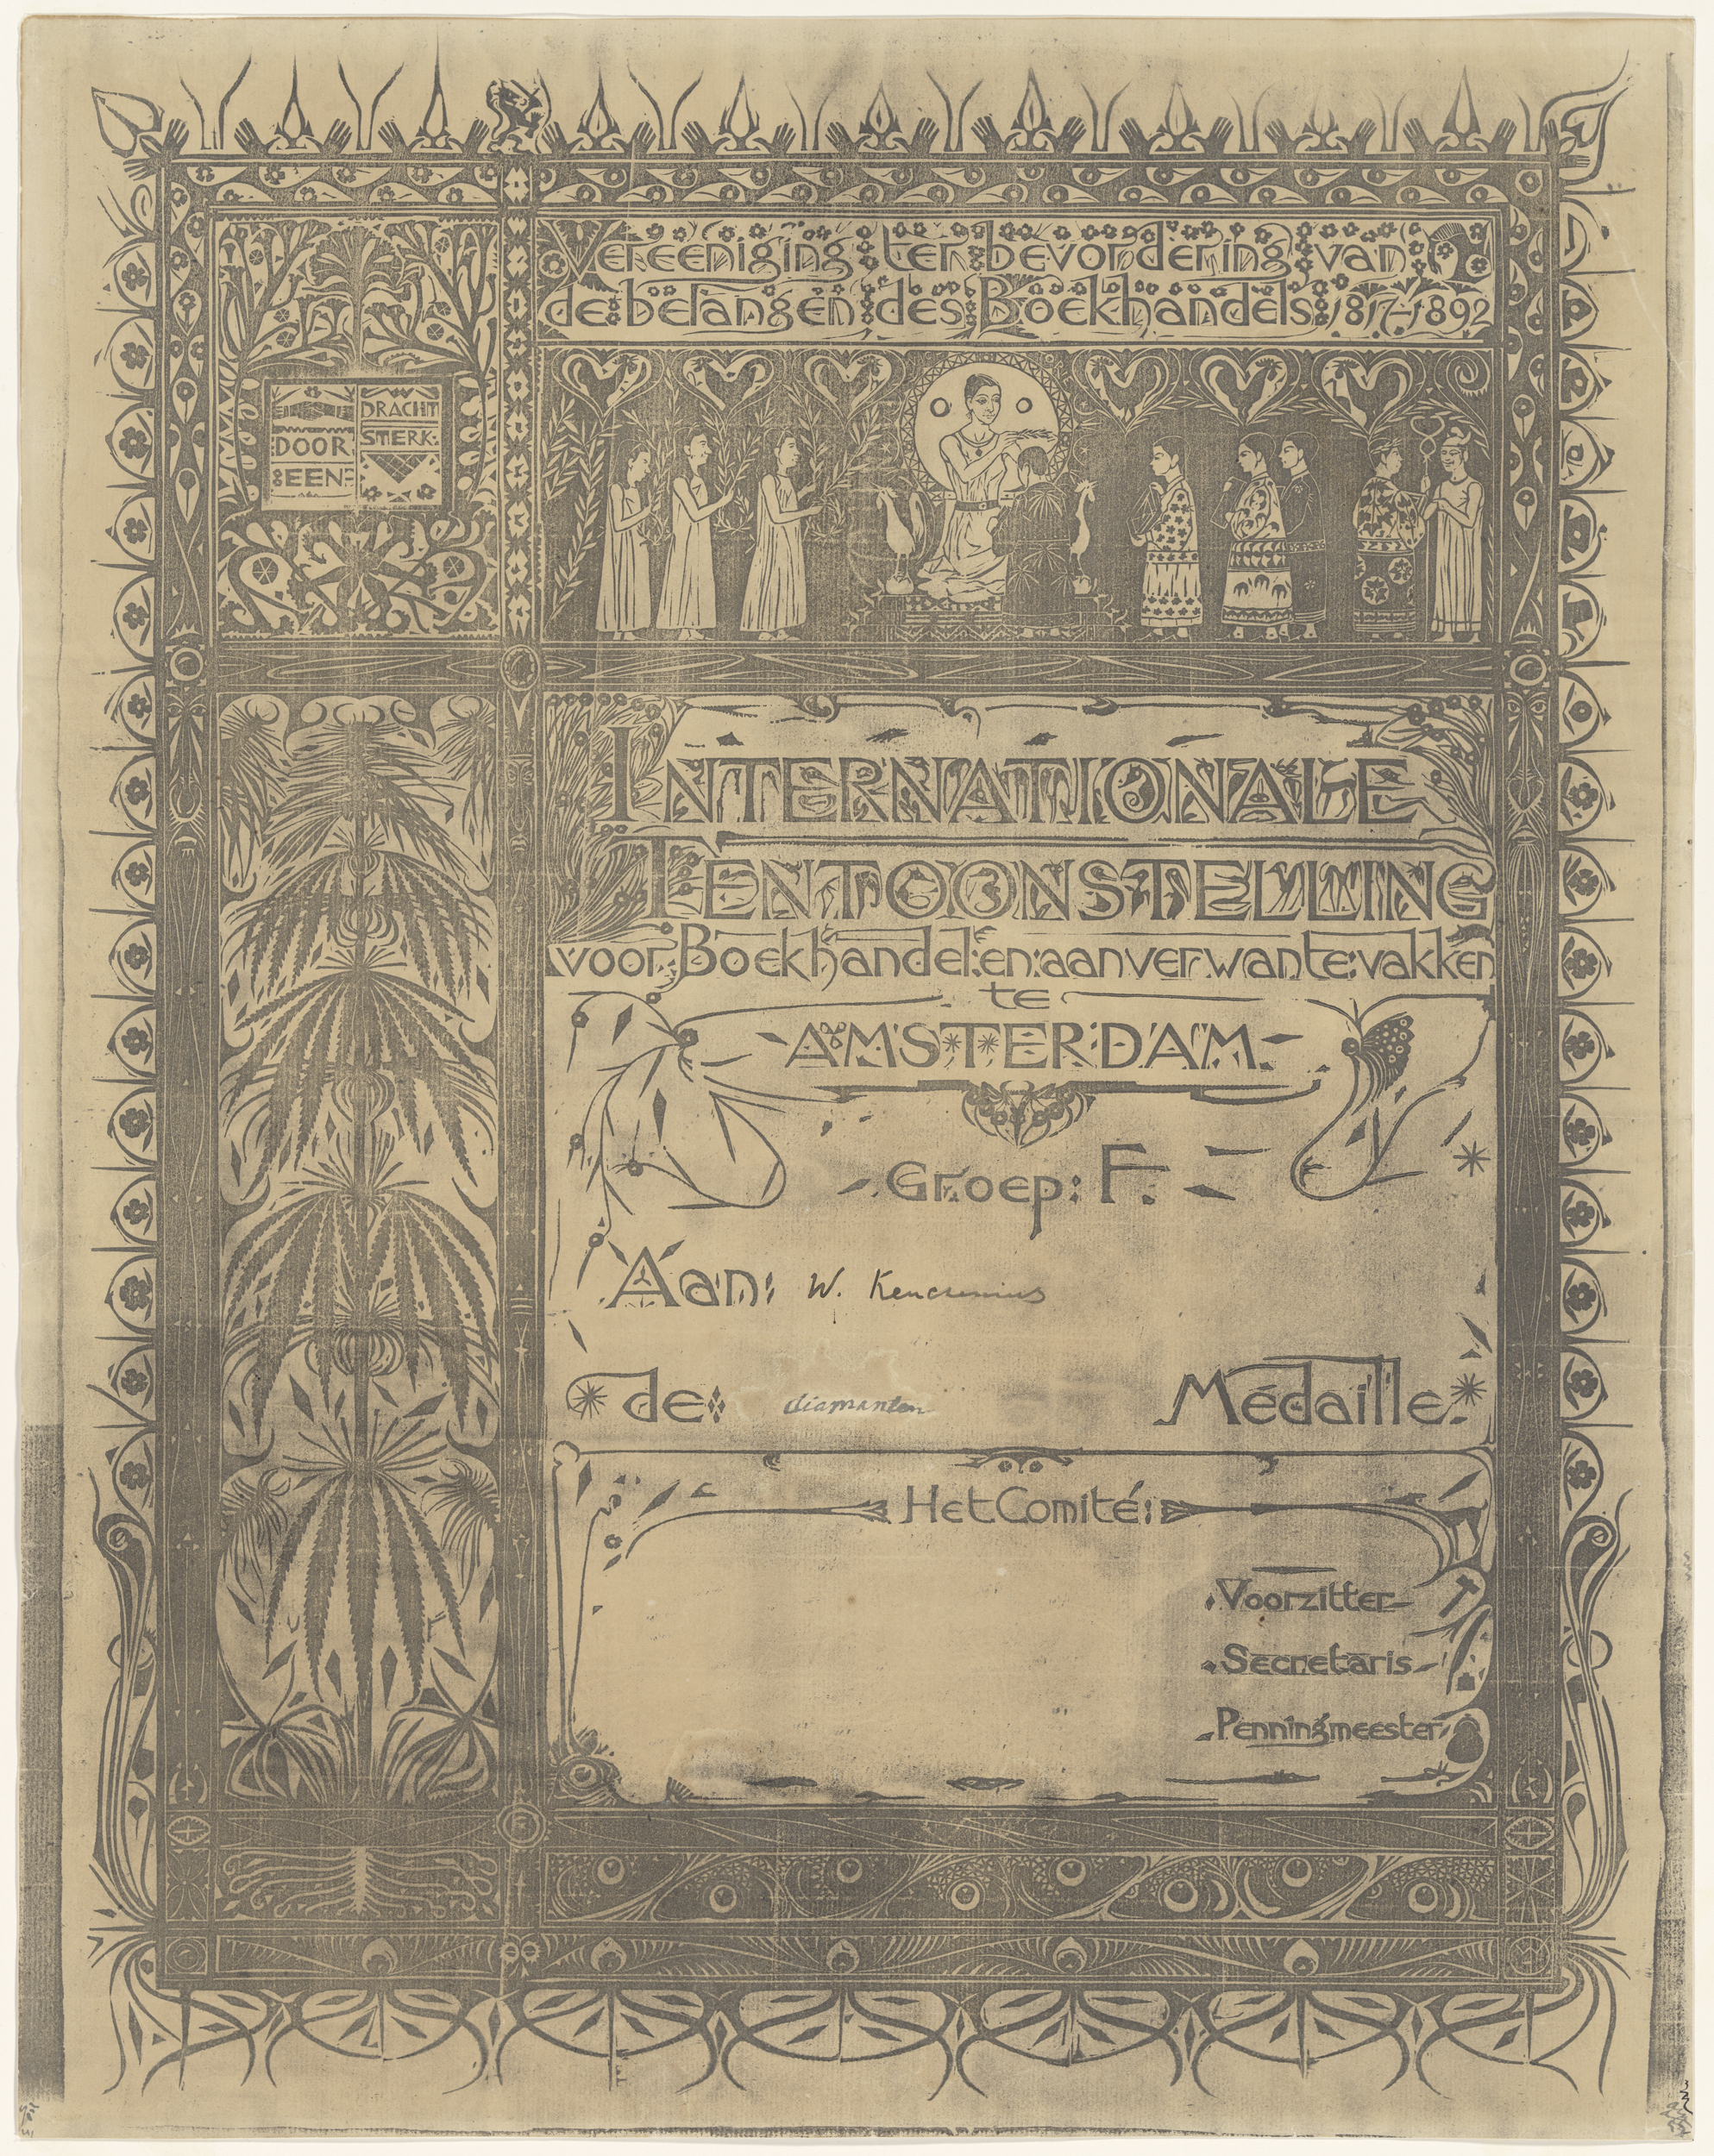 Vereeniging ter bevordering van
de belangen des Boekhandels 1817-1892
DOOR
EEN-
DRACHT
STERK.
INTERNATIONALE
TENTOONSTELLING
voor Boekhandel en aanverwante vakken
te
AMSTERDAM
Groep: F.
Aan: W.
de: diamanten Medaille.
Het Comité:
Voorzitter
Secretaris
Penningmeester